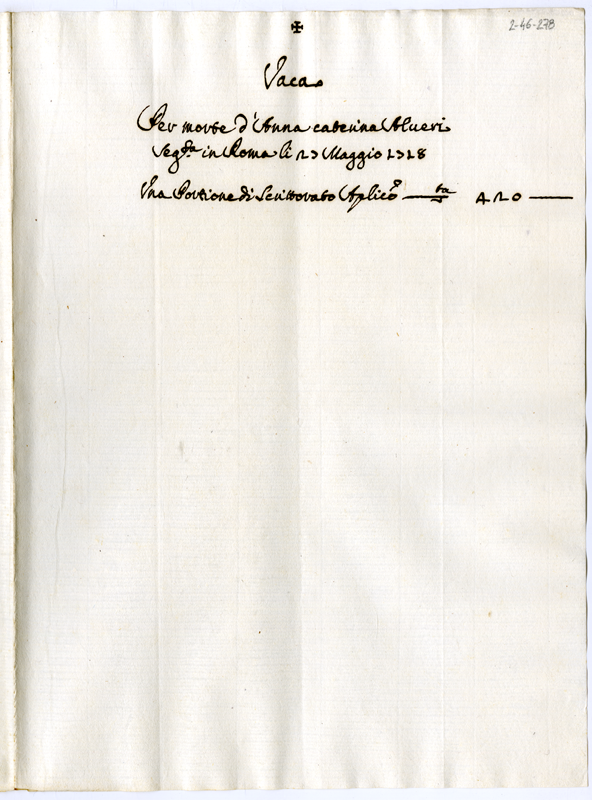 ✠
2-46-278
Vaca
Per morte d'Anna caterina Alveri
Seg.ta in Roma li 23 Maggio 1718
Una Portione di Scrittorato Aplico
420